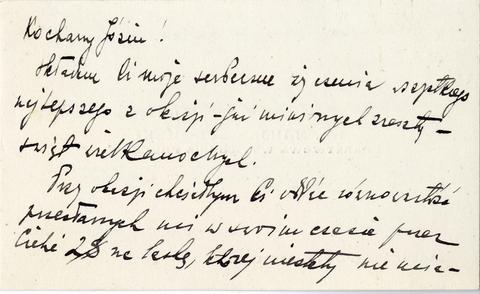 Kochany Józiu!
składam Ci moje serdeczne życzenia wszystkiego
najlepszego z okazji - już minionych zresztą -
świąt wielkanocnych.
Przy okazji chciałbym Ci równowartość
przesłanych mi w swoim czasie przez
Ciebie 2$ na, której niestety nie